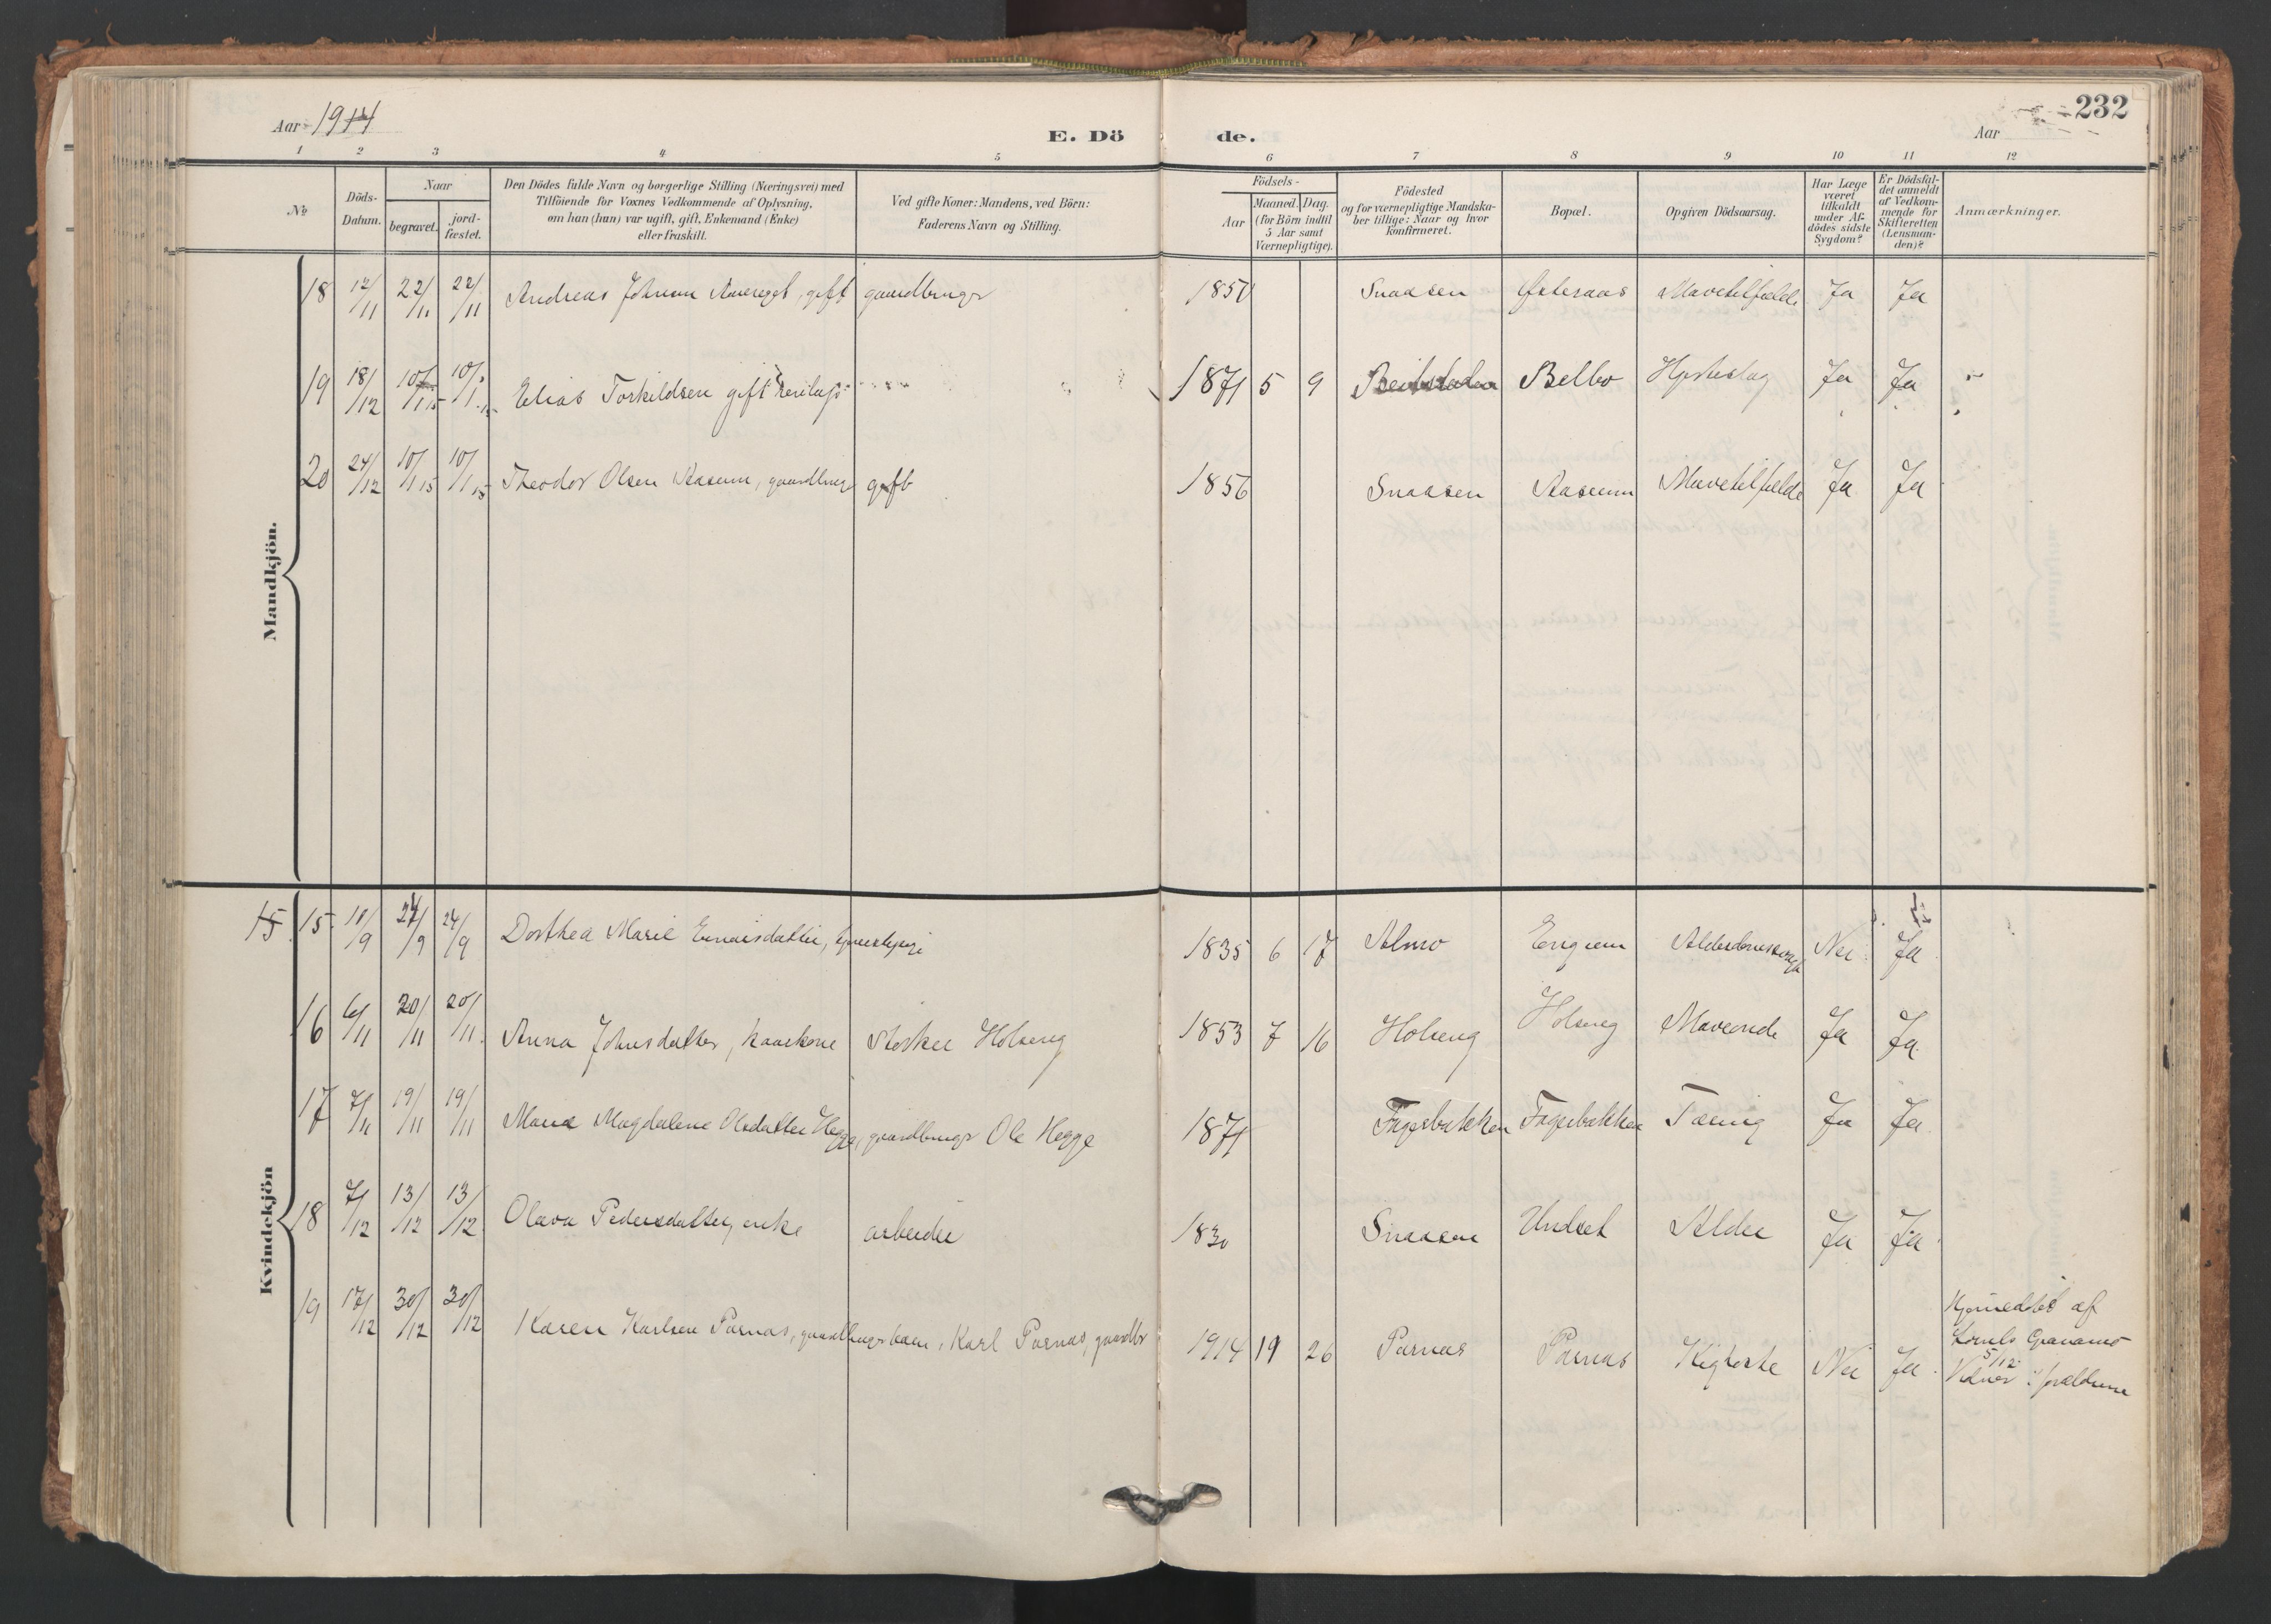 Aar 1914
E. Dö de.
Aar
232
1 2 3 4 5 6 7 8 9 10 11 12
№
Döds-Datum.
Naar
begravet.
jord-fæstet.
Den Dödes fulde Navn og borgerlige Stilling (Næringsvei) med
Tilföiende for Voxnes Vedkommende af Oplysning,
om han (hun) var ugift, gift, Enkemand (Enke)
eller fraskilt.
Ved gifte Koner: Mandens, ved Börn:
Faderens Navn og Stilling.
Födsels-
Aar
Maaned. Dag.
(for Börn indtil
5 Aar samt
Værnepligtige).
Födested
og for værnepligtige Mandska-
ber tillige: Naar og hvor
konfirmeret.
Bopæl.
Opgiven Dödsaarsag.
Har Læge
været
tilkaldt
under Af-
dödes sidste
Sygdom?
Er Dödsfal-
det anmeldt
af Vedkom-
mende for
Skifteretten
(Lensman-
den)?
Anmærkninger.
Mandkjön.
18 12/11 22/11 22/11 Andreas Johnsen gift gaardbruger 1857 Snaasen Østeraas Mavetilfælde Ja Ja
19 18/12 10/1 15 10/1 15 Elias Torkildsen gift 1871 5 9 Beitstaden Belbo Hjerteslag Ja Ja
20 24/12 10/1 15 10/1 15 Theodor Olsen Aasum, gaardbruger gift 1856 Snaasen Aasum Mavetilfælde Ja Ja
Kvindekjön
15 15 18/9 24/9 24/9 Dorthea Marie Einarsdatter, 1835 6 17 Almo Engum Nei Ja
16 6/11 20/11 20/11 Anna Johnsdatter, kaarkone Storker Holseng 1853 7 16 Holseng Holseng Maveonde Ja Ja
17 7/11 19/11 19/11 Maria Magdalene Olsdatter Hegge, gaardbruger Ole Hegge 1871 Fagerbakken Fagerbakken Tæring Ja Ja
18 7/12 13/12 13/12 Olava Pedersdatter, enke arbeider 1830 Snaasen Undset Alder Ja Ja
19 17/12 30/12 30/12 Karen Karlsen Parnas, gaardbrugerbarn, Karl Parnas, gaardbr 1914 19 26 Parnas Parnas Kighoste Nei Ja
Hjemedøbt af
Granamo
5/12
Vidner: forældrene